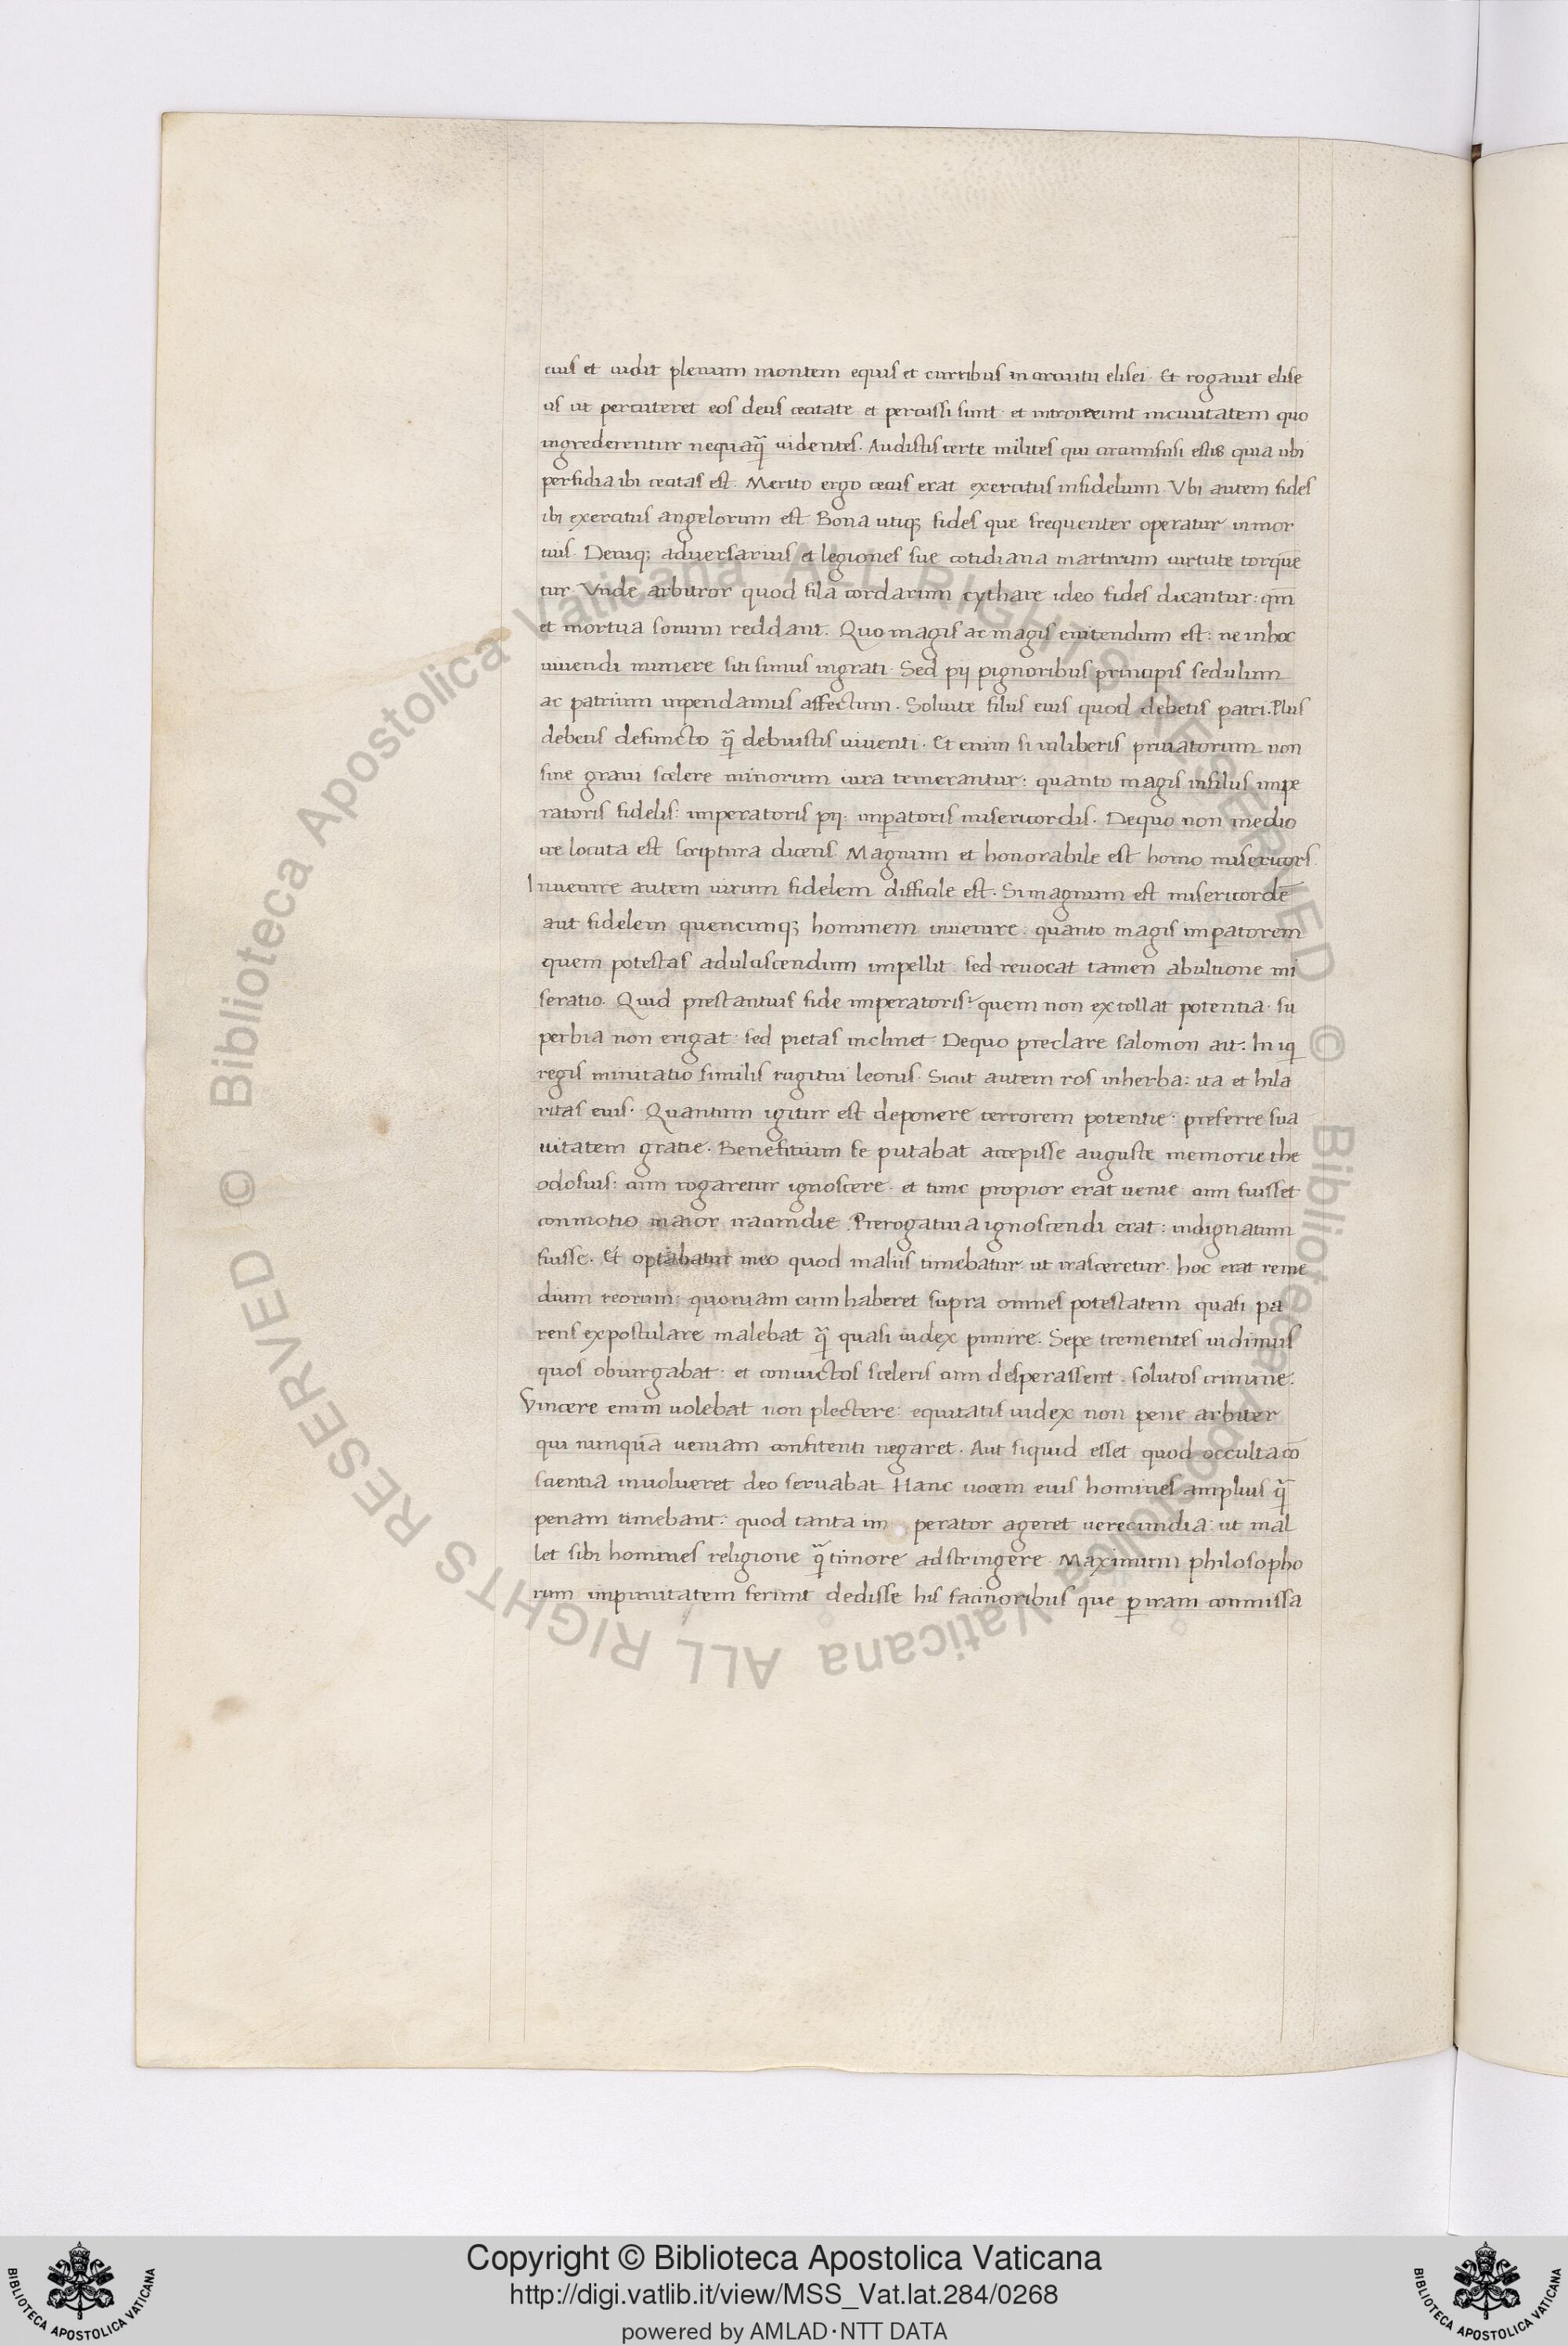 eius et uidit plenum montem equis et curribus in circuitu elisei. Et rogauit elise
us ut percuteret eos deus cecitate et percussi sunt et introierunt inciuitatem quo
ingrederentur nequaq̃ uidentes. Audistis certe milites qui circumfusi estis quia ubi
perfidia ibi cecitas est. Merito ergo cecus erat exercitus infidelium. Vbi autem fides
ibi exercitus angelorum est. Bona utiq; fides que frequenter operatur inmor
tuis. Deniq; aduersarius et legiones sue cotidiana martirum uirtute torque
tur. Vnde arbitror quod fila cordarum cythare ideo fides dicantur: qm̄
et mortua sonum reddant. Quo magis ac magis enitendum est: ne inhoc
uiuendi munere siti simus ingrati. Sed pij pignoribus principis sedulum
ac patrium inpendamus affectum. Soluite filiis eius quod debetis patri. Plus
debetis defuncto q̃ debuistis uiuenti. Et enim si inliberis priuatorum non
sine graui scelere minorum iura temerantur: quanto magis infiliis impe
ratoris fidelis: imperatoris pij: imp̱atoris misericordis. Dequo non medio
cre locuta est scriptura dicens. Magnum et honorabile est homo misericors.
Inuenire autem uirum fidelem difficile est. Si magnum est misericordē
aut fidelem quencunq; hominem inuenire. quanto magis imp̱atorem
quem potestas adulciscendum impellit. sed reuocat tamen abultione mi
seratio. Quid prestantius fide imperatoris: quem non extollat potentia. su
perbia non erigat. sed pietas inclinet. Dequo preclare salomon ait. Iniq
regis minitatio similis rugitui leonis. Sicut autem ros inherba: ita et hila
ritas eius. Quantum igitur est deponere terrorem potentie: preferre sua
uitatem gratie. Benefitium se putabat accepisse auguste memorie the
odosius: cum rogaretur ignoscere. et tunc propior erat uenie cum fuisset
conmotio maior iracundie. Prerogatiua ignoscendi erat: indignatum
fuisse. Et optabatur ineo quod maliis timebatur. ut irasceretur. hoc erat reme
dium reorum: quoniam cum haberet supra omnes potestatem quasi pa
rens expostulare malebat q̃ quasi iudex punire. Sepe trementes uidimus
quos obiurgabat: et conuictos sceleris cum desperassent. solutos crimine.
Vincere enim uolebat non plectere: equitatis iudex non pene arbiter
qui nunquā ueniam confitenti negaret. Aut siquid esset quod occulta cō
scientia inuolueret deo seruabat. Hanc uocem eius homines amplius q̃
penam timebant: quod tanta im perator ageret uerecundia: ut mal
let sibi homines religione q̃ timore adstringere. Maximum philosopho
rum impunitatem ferunt dedisse his facinoribus que p̱ iram conmissa
© Biblioteca Apostolica Vaticana ALL RIGHTS RESERVED © Biblioteca Apostolica Vaticana ALL RIGHTS RESERVED
Copyright © Biblioteca Apostolica Vaticana
http://digi.vatlib.it/view/MSS_Vat.lat.284/0268
powered by AMLAD·NTT DATA
BIBLIOTECA APOSTOLICA VATICANA
BIBLIOTECA APOSTOLICA VATICANA